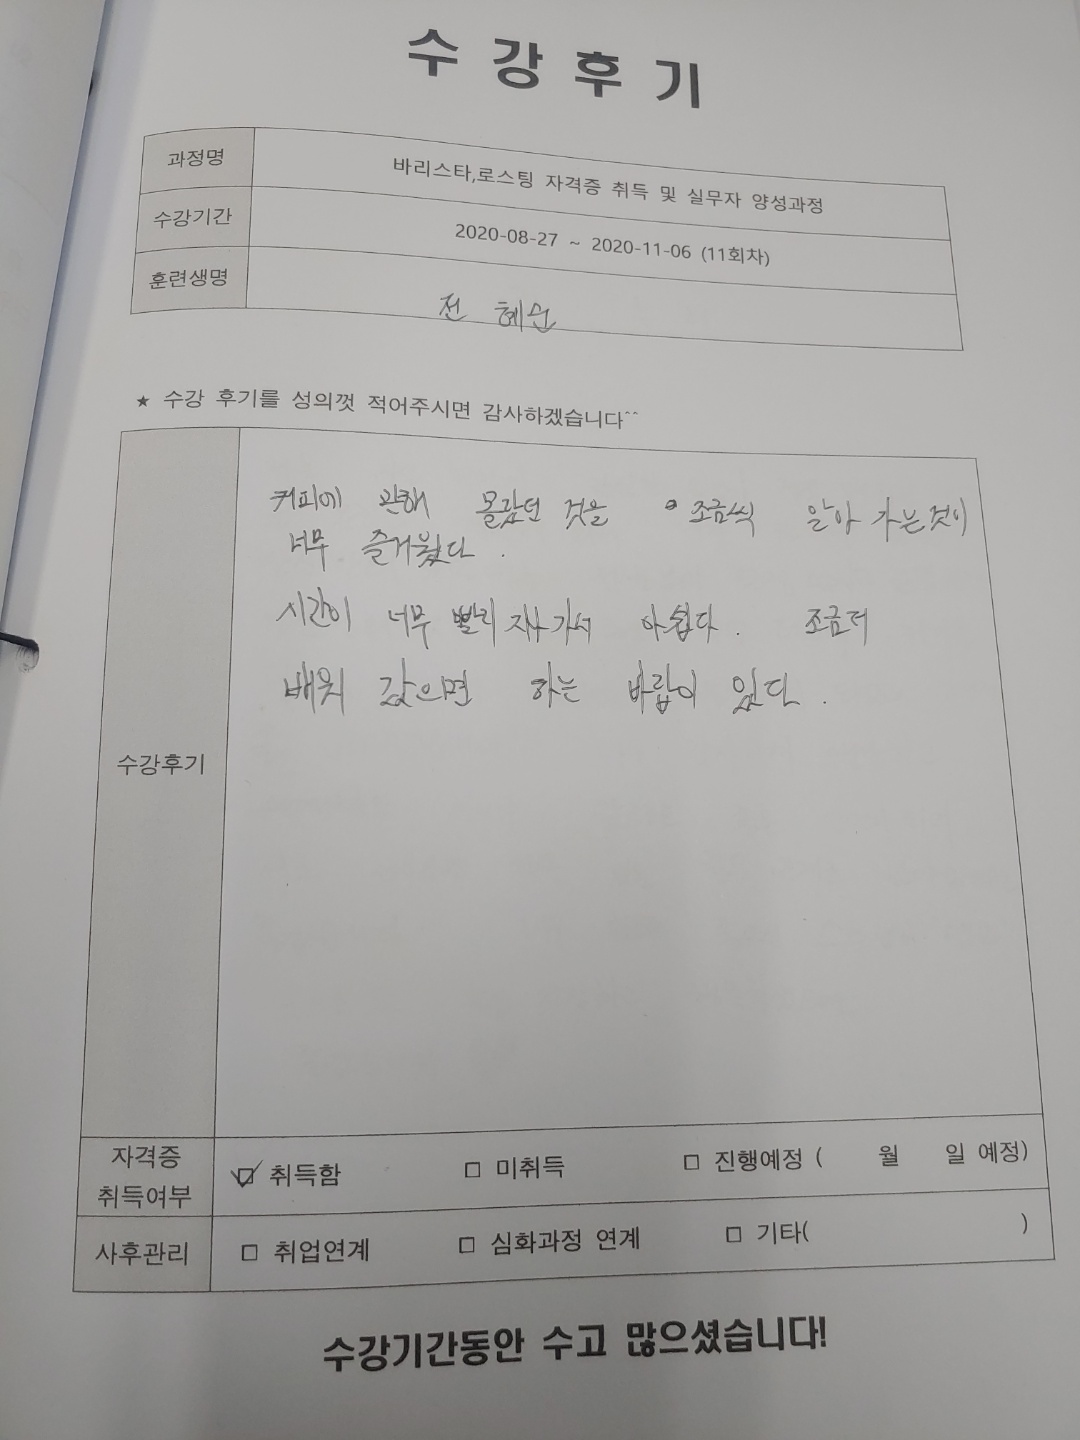 수 강 후 기
과정명 바리스타,로스팅 자격증 취득 및 실무자 양성과정
수강기간 2020-08-27 ~ 2020-11-06 (11회차)
훈련생명 전 혜순
★ 수강 후기를 성의껏 적어주시면 감사하겠습니다^^
커피에 관해 몰랐던 것을 조금씩 알아 가는것이
너무 즐거웠다.
시간이 너무 빨리 지나가서 아쉽다. 조금더
배워 갔으면 하는 바람이 있다.
수강후기
자격증 취득여부 ☑ 취득함 □ 미취득 □ 진행예정 ( 월 일 예정)
사후관리 □ 취업연계 □ 심화과정 연계 □ 기타( )
수강기간동안 수고 많으셨습니다!